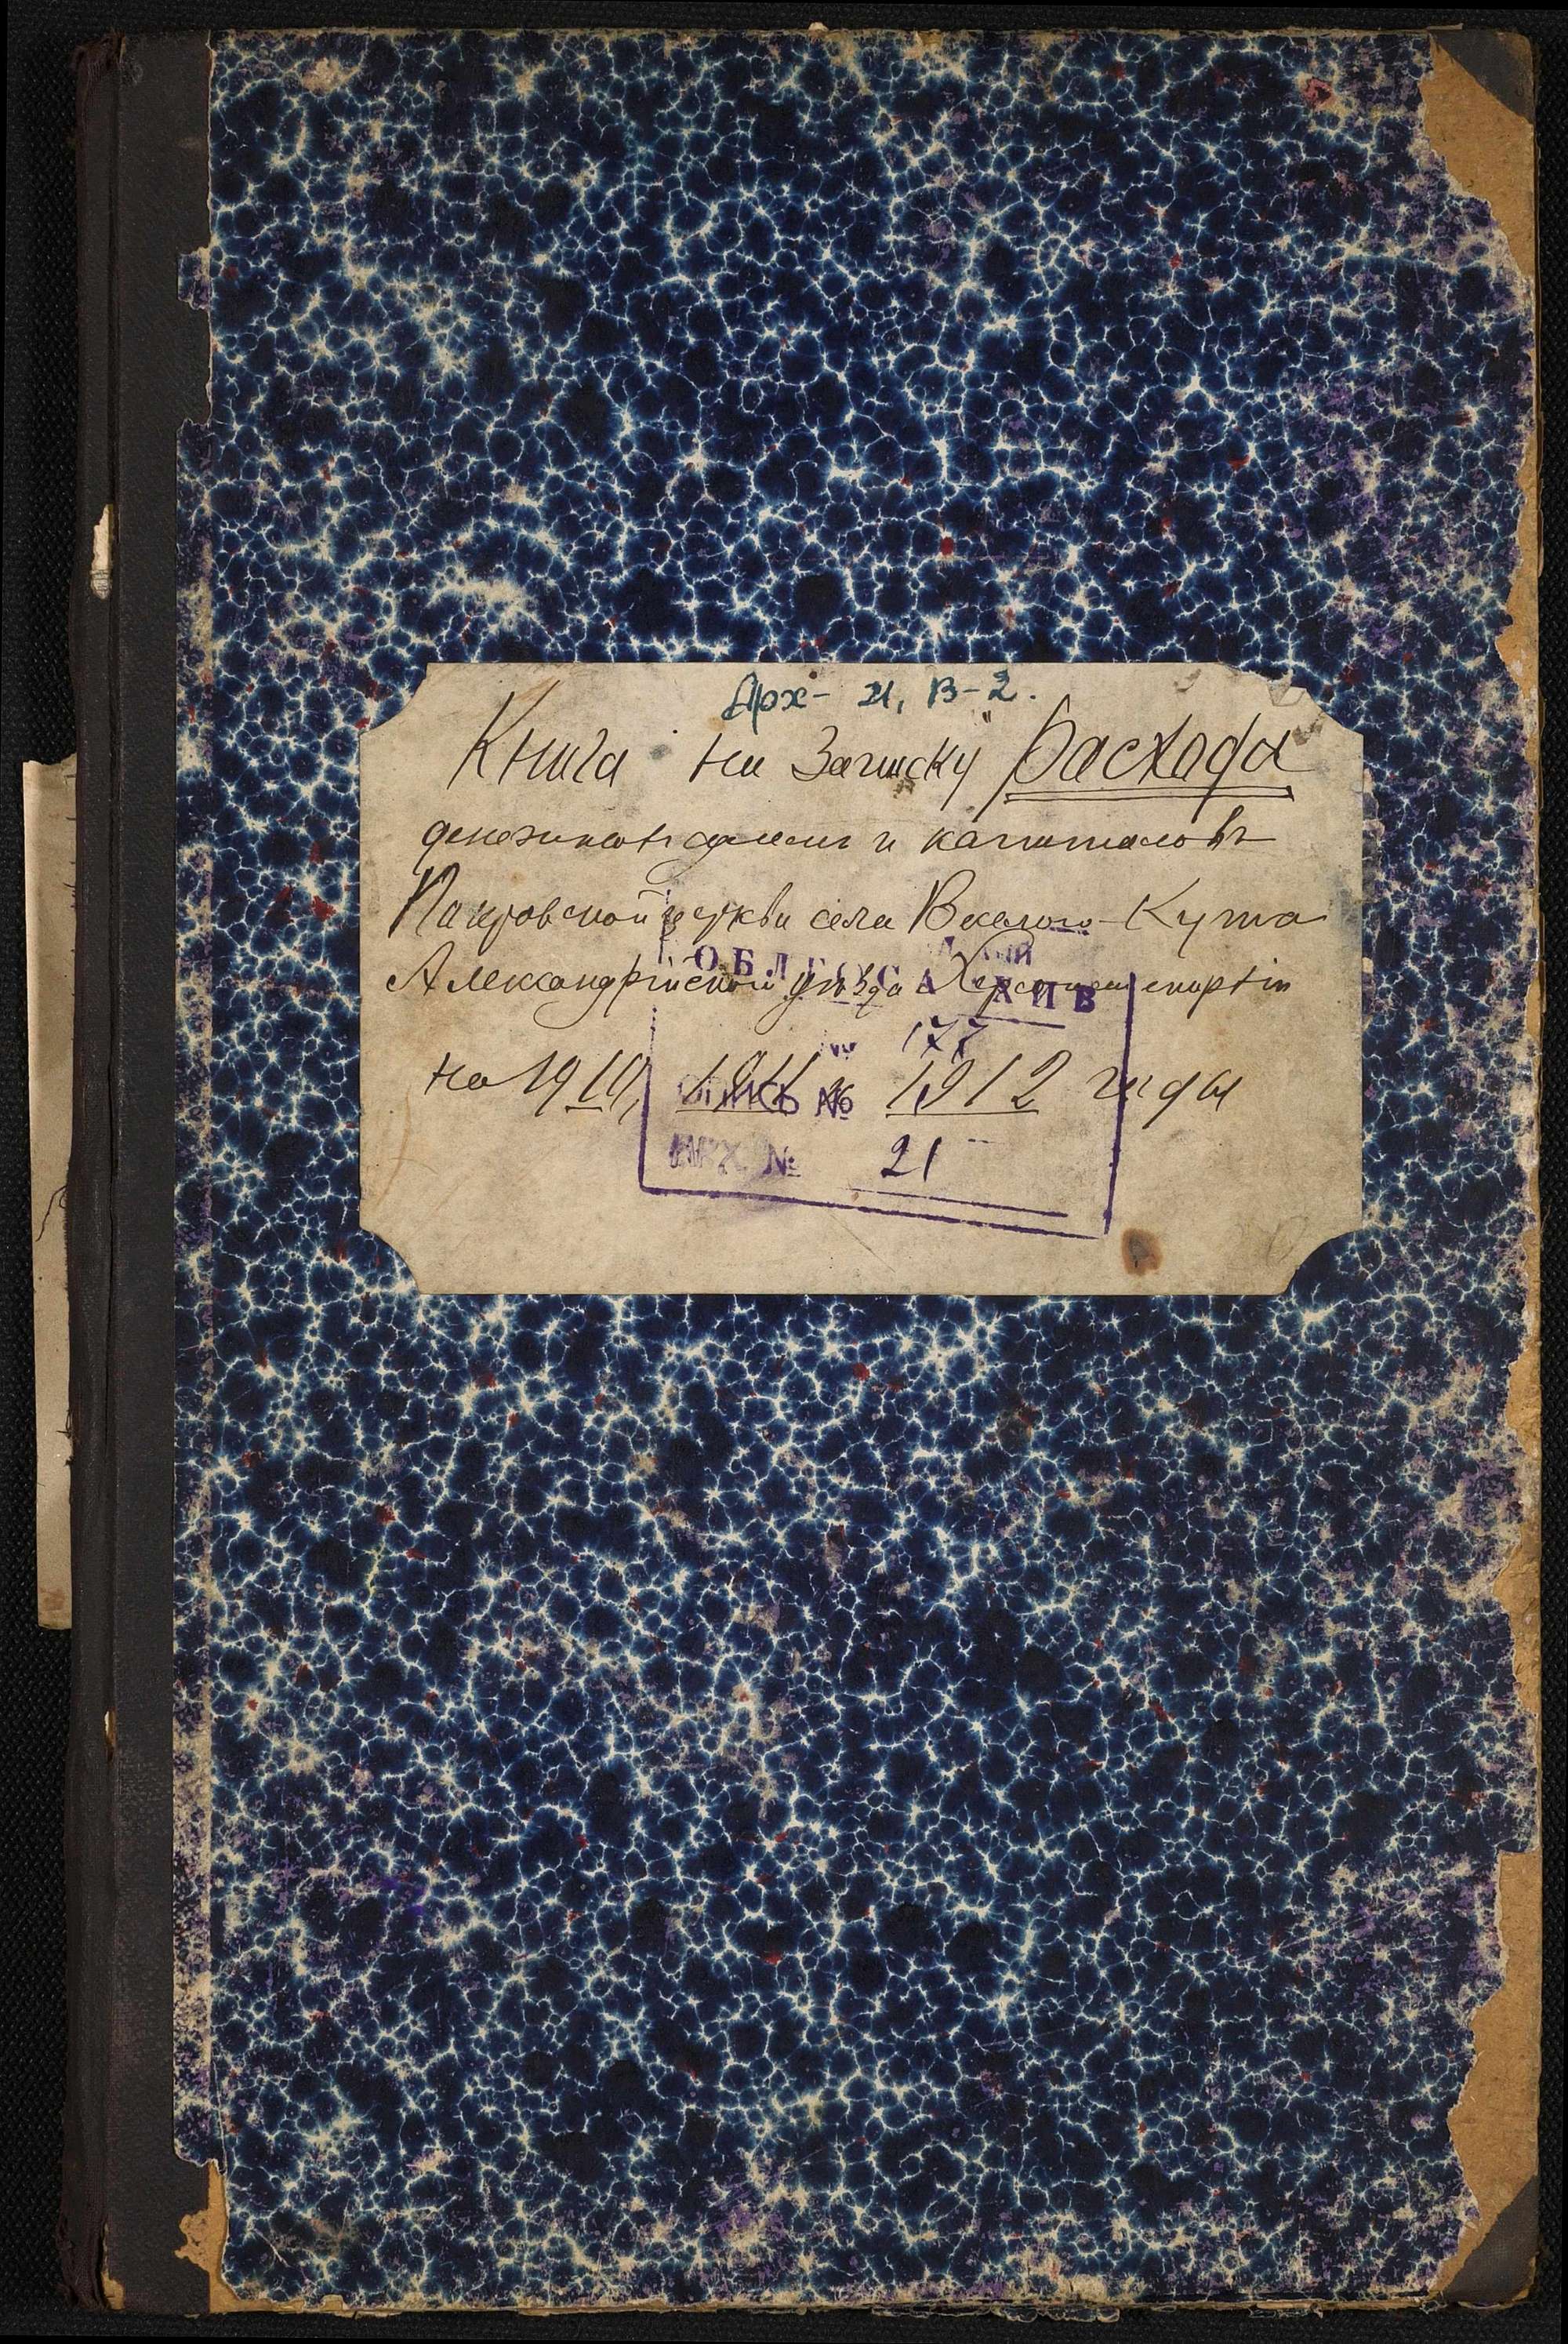 Арх- 21, В-2.
Книга на Записку Расхода
денежныхъ суммъ и капиталовъ
Покровской церкви села Веселого-Кута
Александрійскаго уѣзда Херсонской епархіи
на 1910, 1911 и 1912 годы
ОБЛГОСАРХИВ
№ 177
ОПИСЬ №
АРХ. № 21